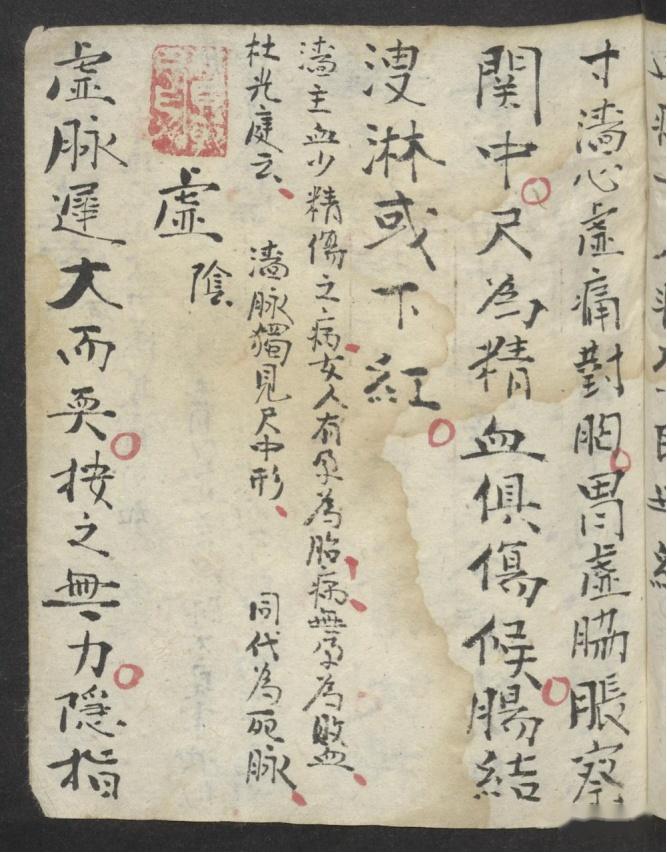 寸濇心虛痛對胸胃虛脇脹察
関中尺為精血俱傷候腸結
溲淋或下紅
濇主血少精傷之病女人有孕為胎病無孕為敗血
杜光庭云濇脉獨見尺中形同代為死脉
虛陰
虛脉遲大而耎按之無力隱指